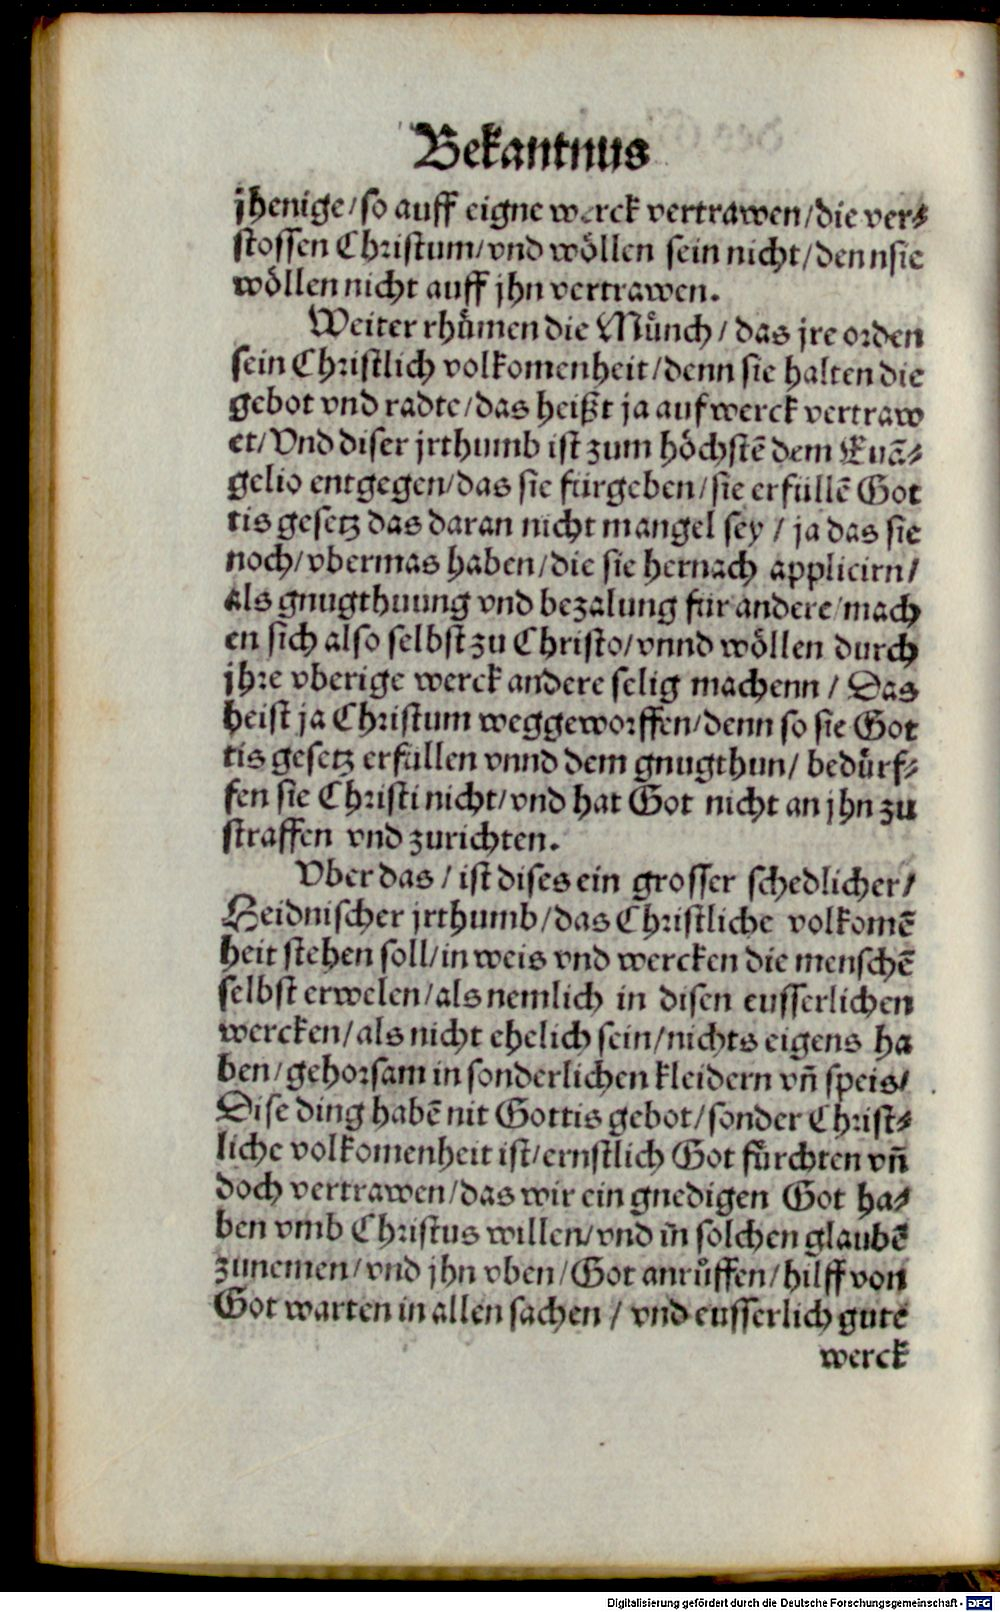 Bekantnus
jhenige/so auff eigne werck vertrawen/die ver⸗
stossen Christum/vnd wöllen sein nicht/dennsie
wöllen nicht auff jhn vertrawen.
Weiter rhůmen die Můnch/das jre orden
sein Christlich volkomenheit/denn sie halten die
gebot vnd radte/das heißt ja auf werck vertraw
et/Vnd diser jrthumb ist zum höchstē dem Euā⸗
gelio entgegen/das sie fürgeben/sie erfüllē Got
tis gesetz das daran nicht mangel sey/ja das sie
noch/vbermas haben/die sie hernach applicirn/
als gnugthuung vnd bezalung für andere/mach
en sich also selbst zu Christo/vnnd wöllen durch
jhre vberige werck andere selig machenn/Das
heist ja Christum weggeworffen/denn so sie Got
tis gesetz erfüllen vnnd dem gnugthun/bedůrf⸗
fen sie Christi nicht/vnd hat Got nicht an jhn zu
straffen vnd zurichten.
Vber das/ist dises ein grosser schedlicher/
Heidnischer jrthumb/das Christliche volkomē
heit stehen soll/in weis vnd wercken die menschē
selbst erwelen/als nemlich in disen eusserlichen
wercken/als nicht ehelich sein/nichts eigens ha
ben/gehorsam in sonderlichen kleidern vn̄ speis/
Dise ding habē nit Gottis gebot/sonder Christ⸗
liche volkomenheit ist/ernstlich Got fůrchten vn̄
doch vertrawen/das wir ein gnedigen Got ha⸗
ben vmb Christus willen/vnd in̄ solchen glaubē
zunemen/vnd jhn vben/Got anrůffen/hilff von
Got warten in allen sachen/vnd eusserlich gute
werck
Digitalisierung gefördert durch die Deutsche Forschungsgemeinschaft - DFG